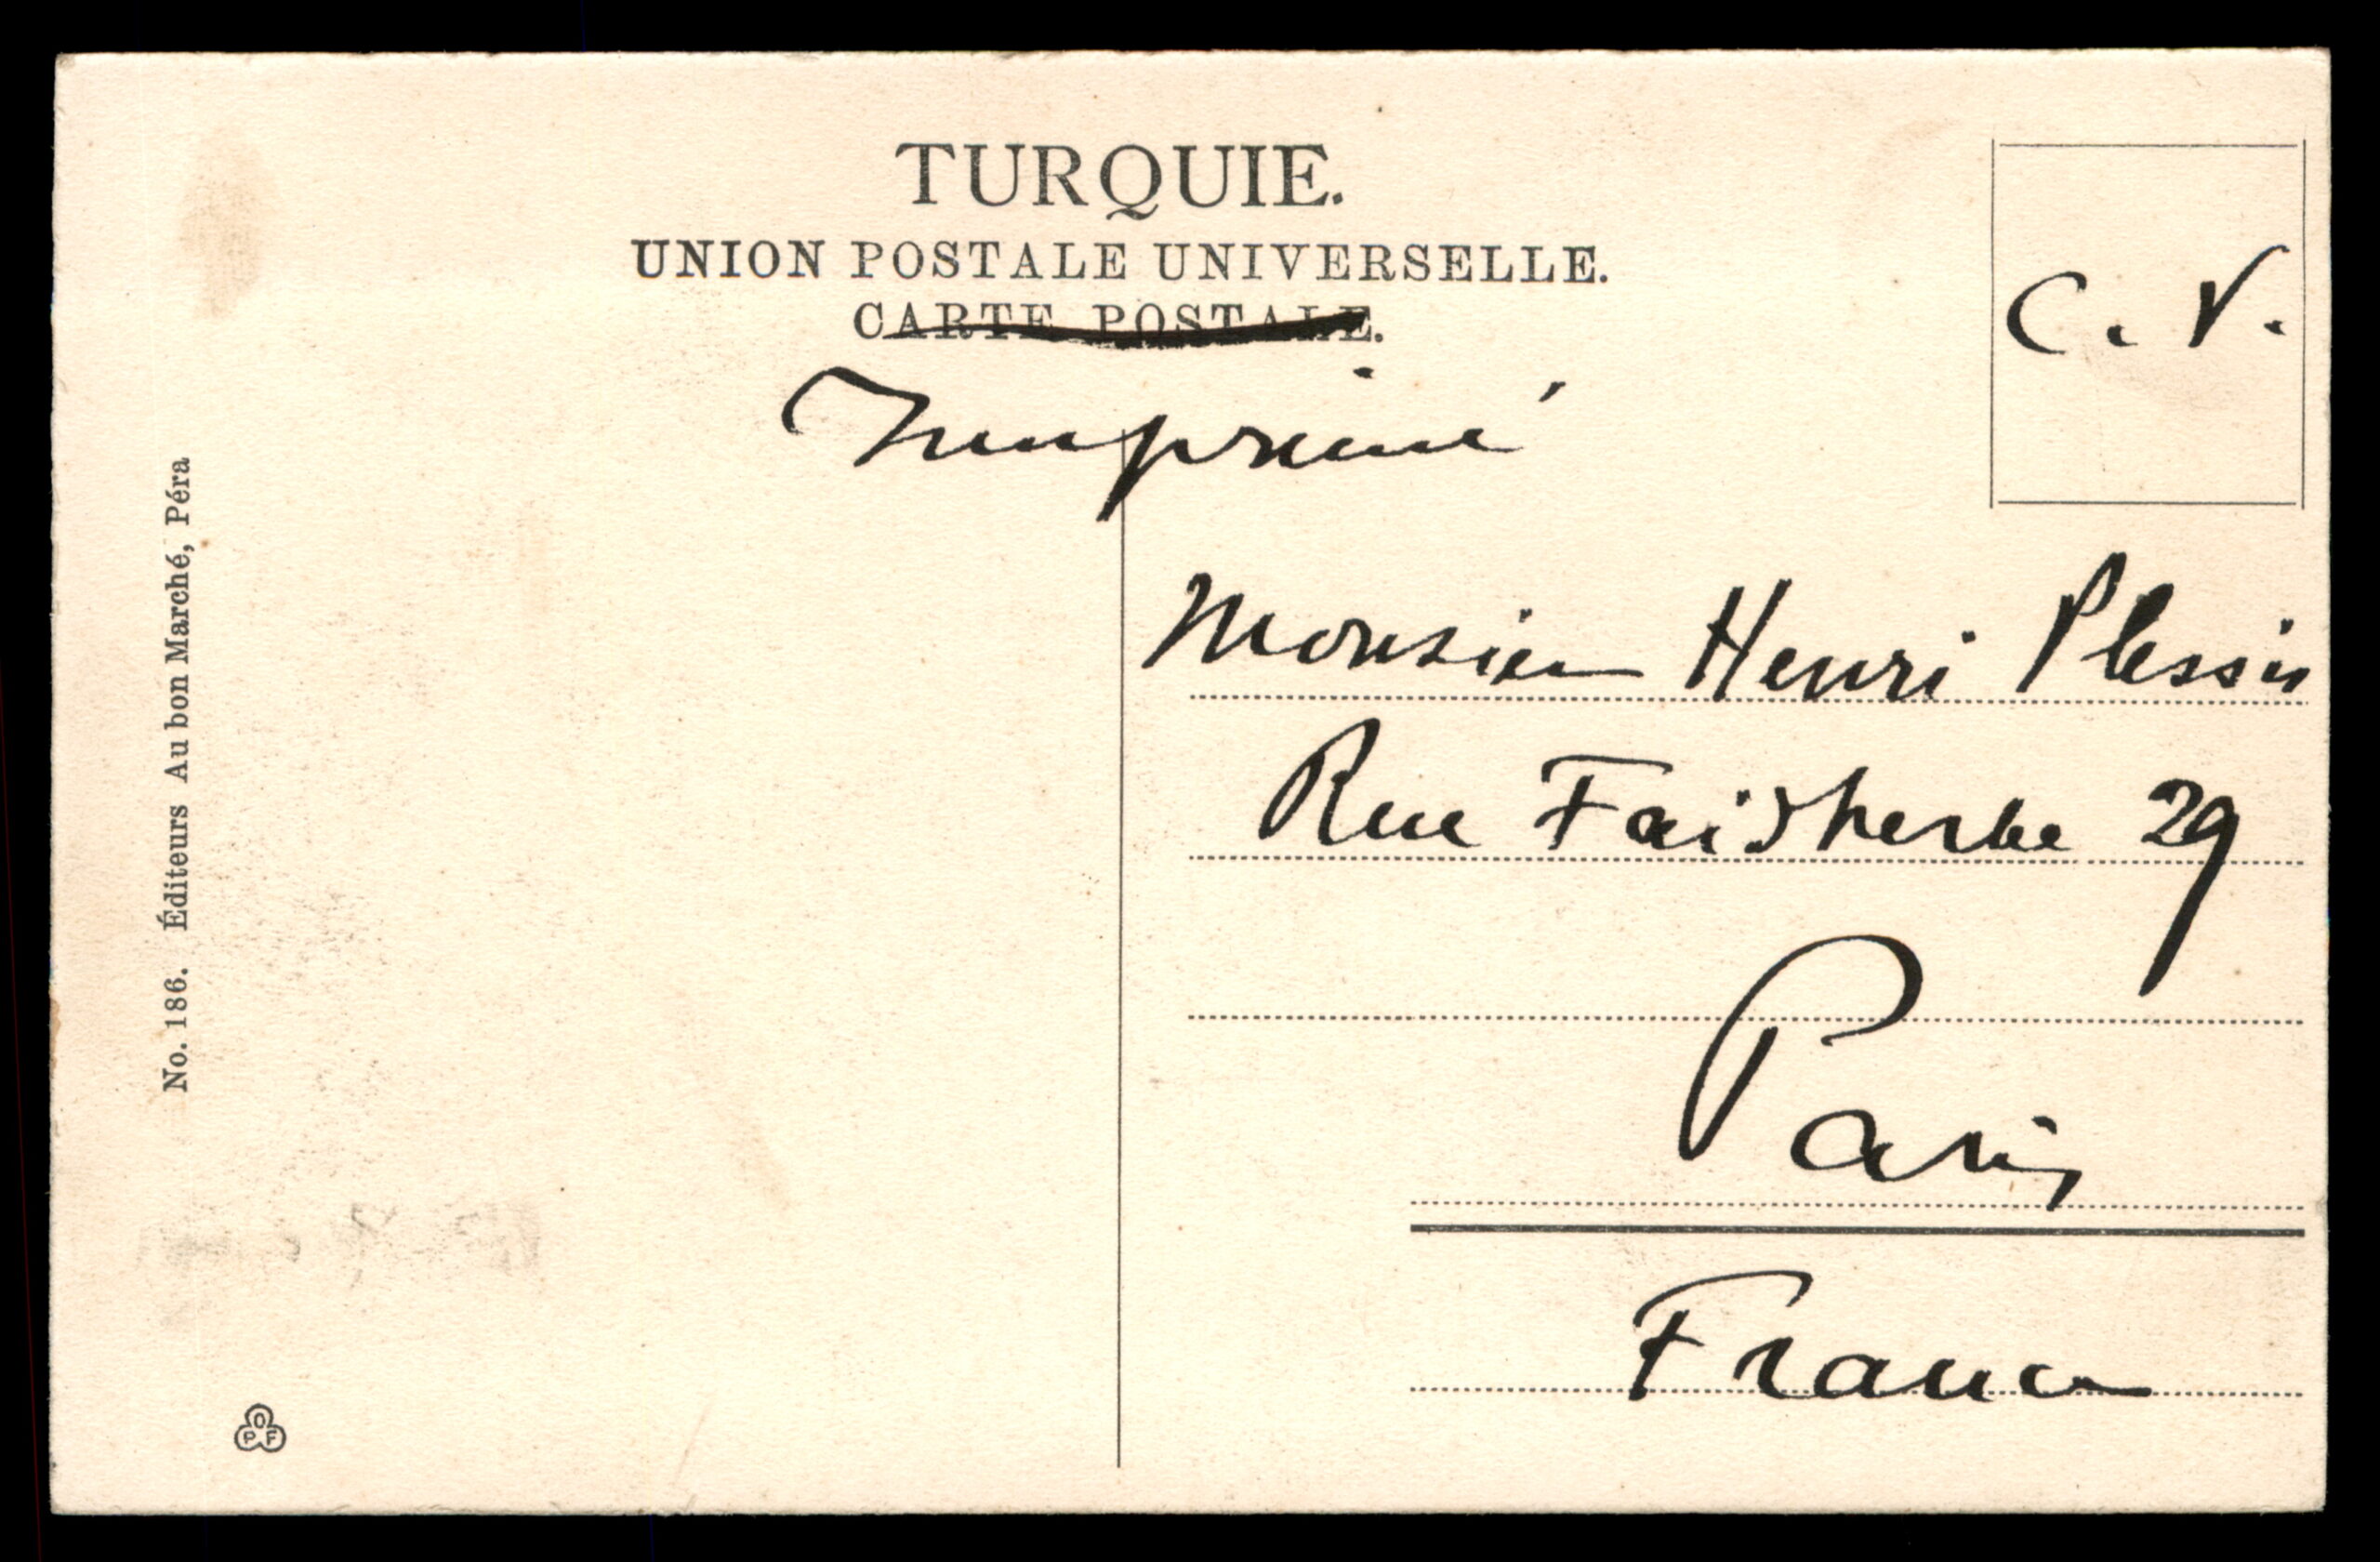 TURQUIE.
UNION POSTALE UNIVERSELLE.
CARTE POSTALE.
Imprimé
C. V.
Monsieur Henri Plessis
Rue Faidherbe 29
Paris
France
No. 186. Éditeurs Au bon Marché, Péra
O
P F